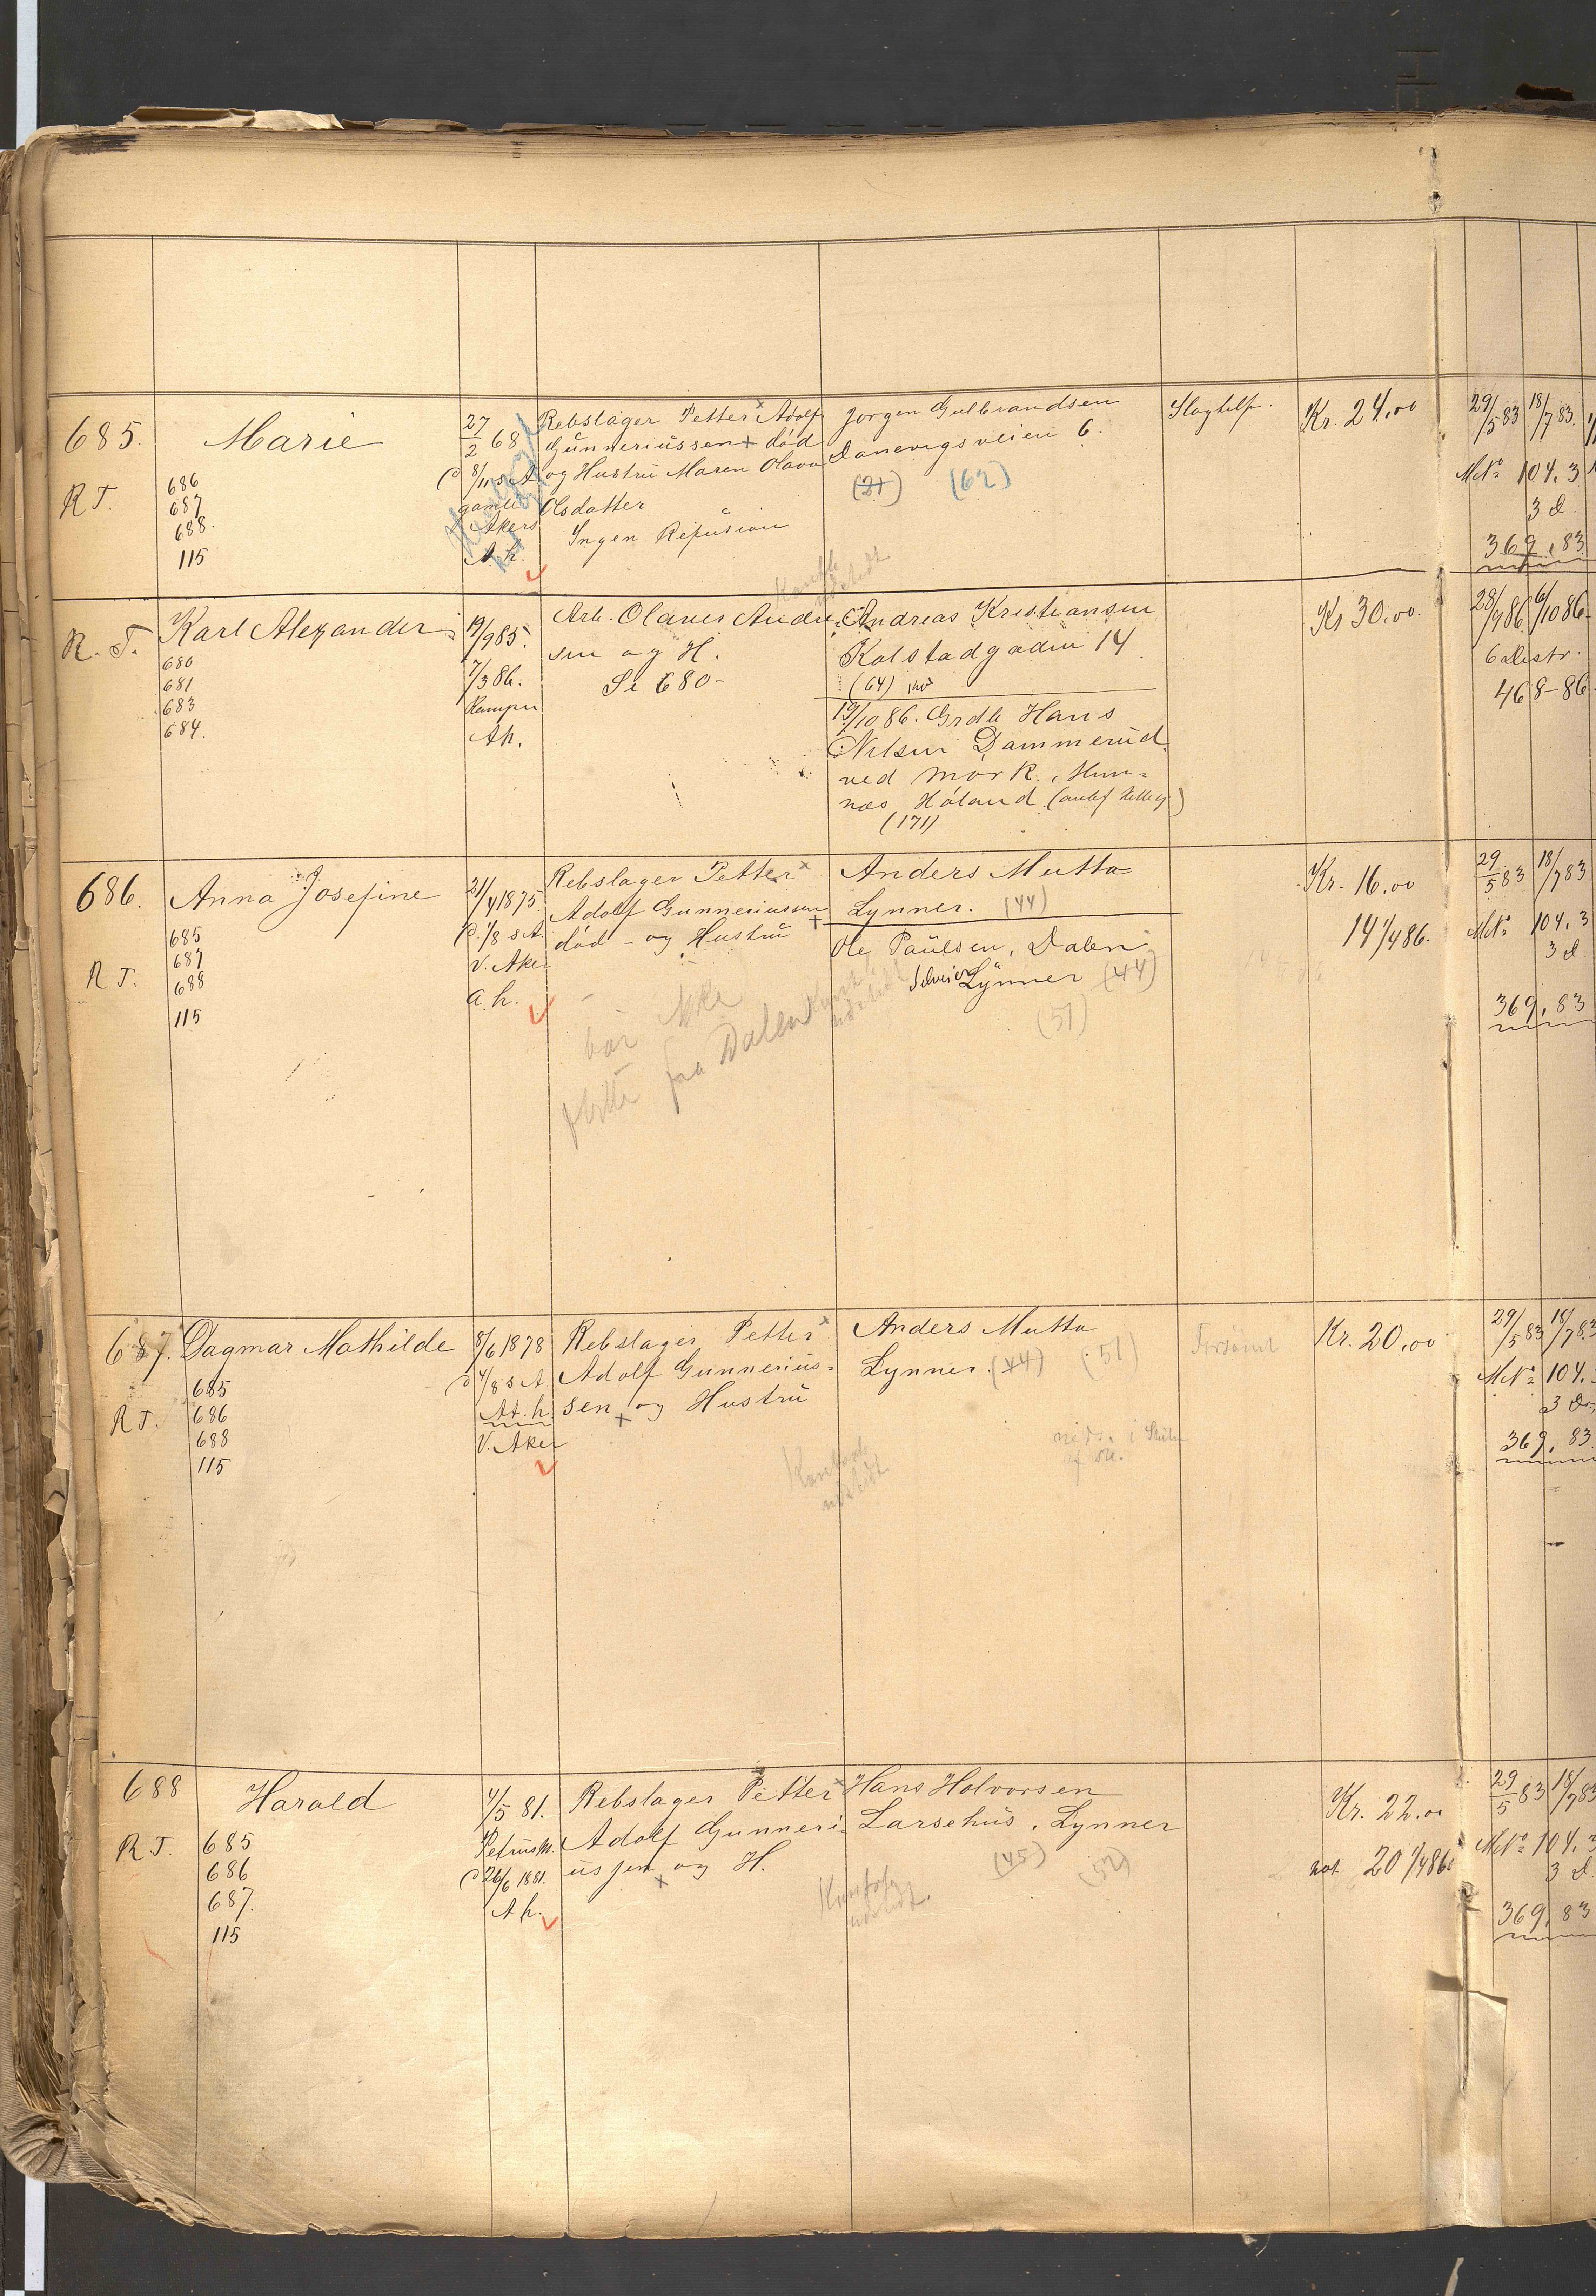 685.
R T.
Marie
686
687
688.
115
27/2 68
8/11 s A
gamle
Akers
A. h.
Rebslager Petter Adolf
Gunneriussen + død
og Hustru Maren Olava
Olsdatter
Ingen Refusion
Jørgen Gulbrandsen
Danevigsveien 6.
(21) (62)
Slaghelf.
Kr. 24.00
29/5 83 18/7 83.
MNo 104. 3
3 d.
369, 83
R. T.
Karl Alexander
680
681
683
684.
19/9 85.
7/3 86.
Kampen
Ah.
Arb. Olaves Andre-
sen og H.
Se 680-
Andreas Kristiansen
Kalstadgaden 14
(64)
19/10 86. Grdb Hans
Nilsen Dammerud
ved Mørk, Hem-
næs Høland
(171)
Kr 30.00.
28/9 86. 6/10 86.
468-86
686.
R T.
Anna Josefine
685
687
688
115
21/4 1875
d. 1/8 s A.
V. Aker
A. h.
Rebslager Petter
Adolf Gunneriussen
død - og Hustru
bør ikke
flytte fra Dalen
Anders Mutta
Lynner. (44)
Ole Paulsen, Dalen
Lynner (44)
(51)
Kr. 16.00
14 1/4 86.
29/5 83 18/7 83
MNo 104. 3
3 d
369, 83
687.
R T.
Dagmar Mathilde
685
686
688
115
8/6 1878
d 4/8 s A.
A. h.
V. Aker
Rebslager Petter
Adolf Gunnerius-
sen og Hustru
Anders Mutta
Lynner. (44) (51)
Forsømt
Kr. 20.00
29/5 83 18/7 83
MNo 104.
369, 83.
688
R T.
Harald
685
686
687.
115
4/5 81.
Petrus M.
d 26/6 1881.
A h.
Rebslager Petter
Adolf Gunneri-
ussen og H.
Hans Halvorsen
Larsehus, Lynner
(45) (52)
Kr. 22.00
20 1/4 86
29/5 83 18/7 83
MNo 104. 3
3 d.
369, 83